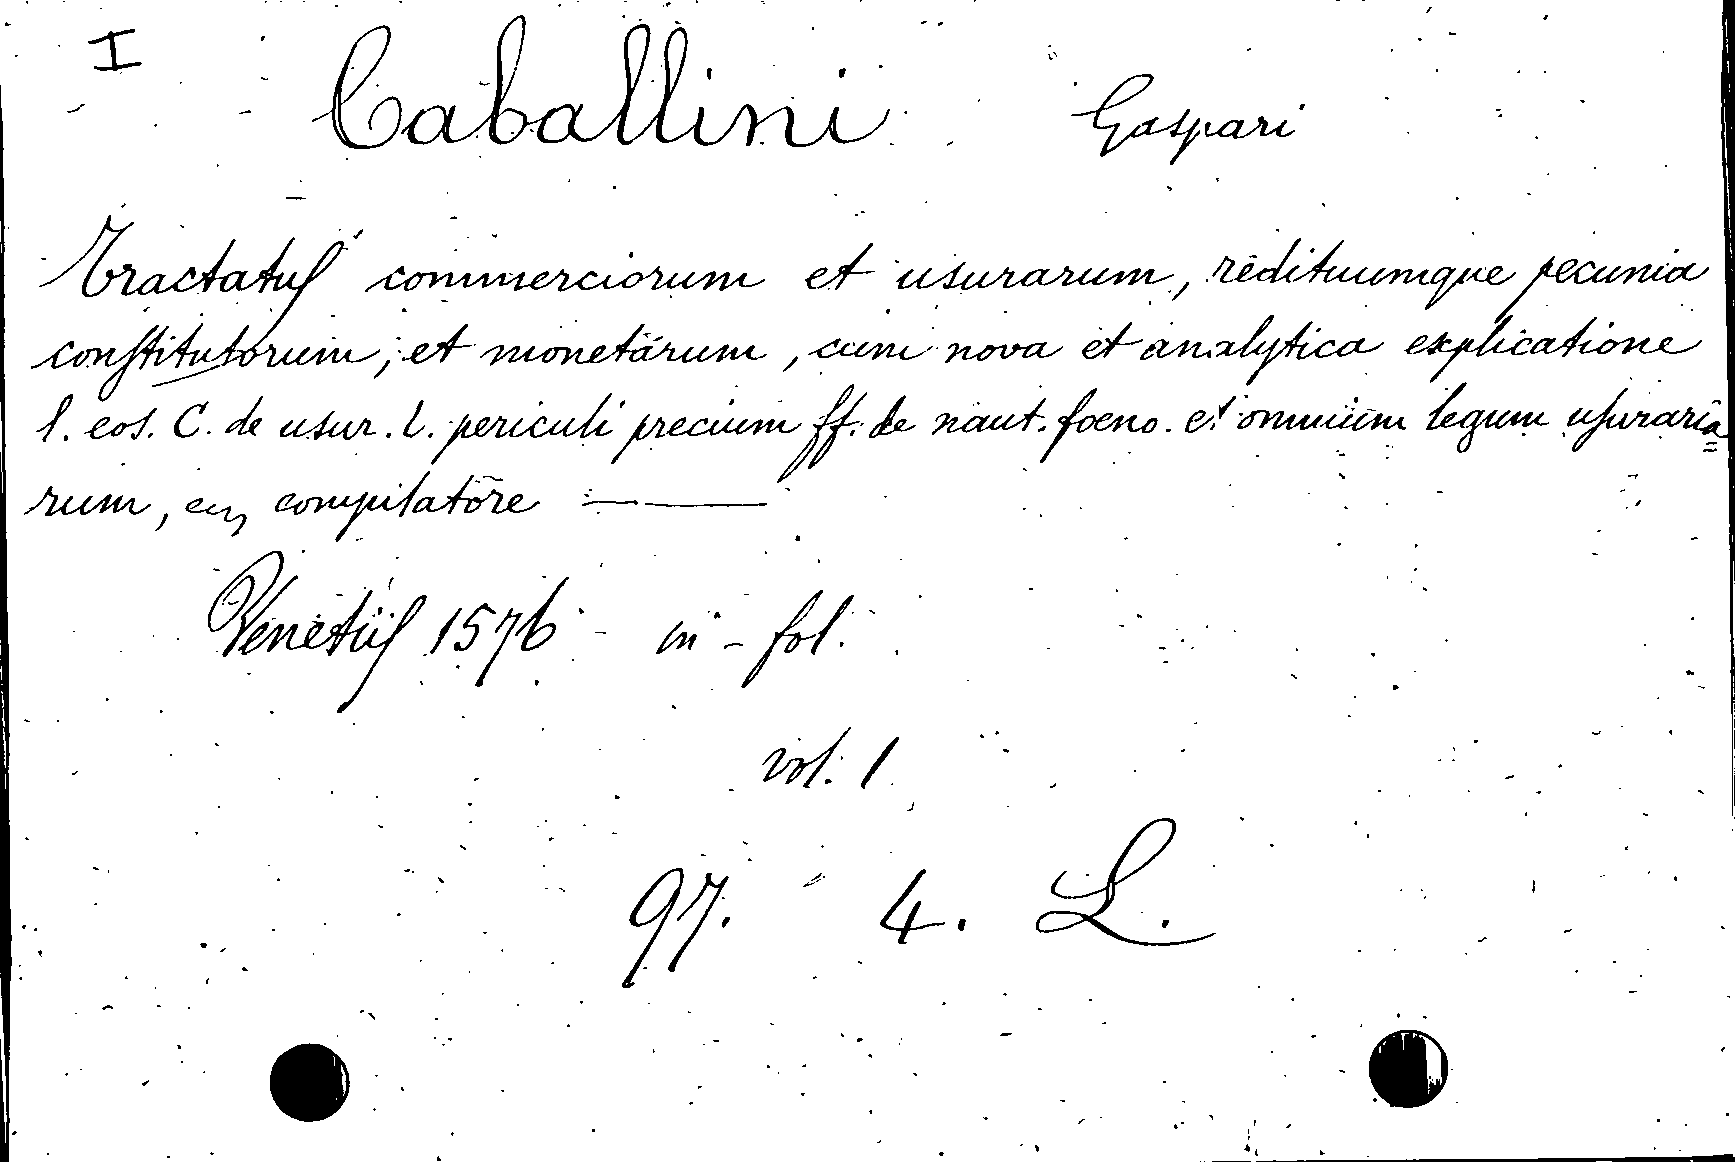 I
Caballini Gaspari
Tractatus commerciorum et usurarum, redituumque pecunia
constitutorum, et monetarum, cum nova et analytica explicatione
l. eos. C. de usur. l. periculi precium ff. de naut. foeno. et omnium legum usuraria=
rum, compilatore ———
Venetiis 1576 - in - fol.
vol. 1
97. 4. L.